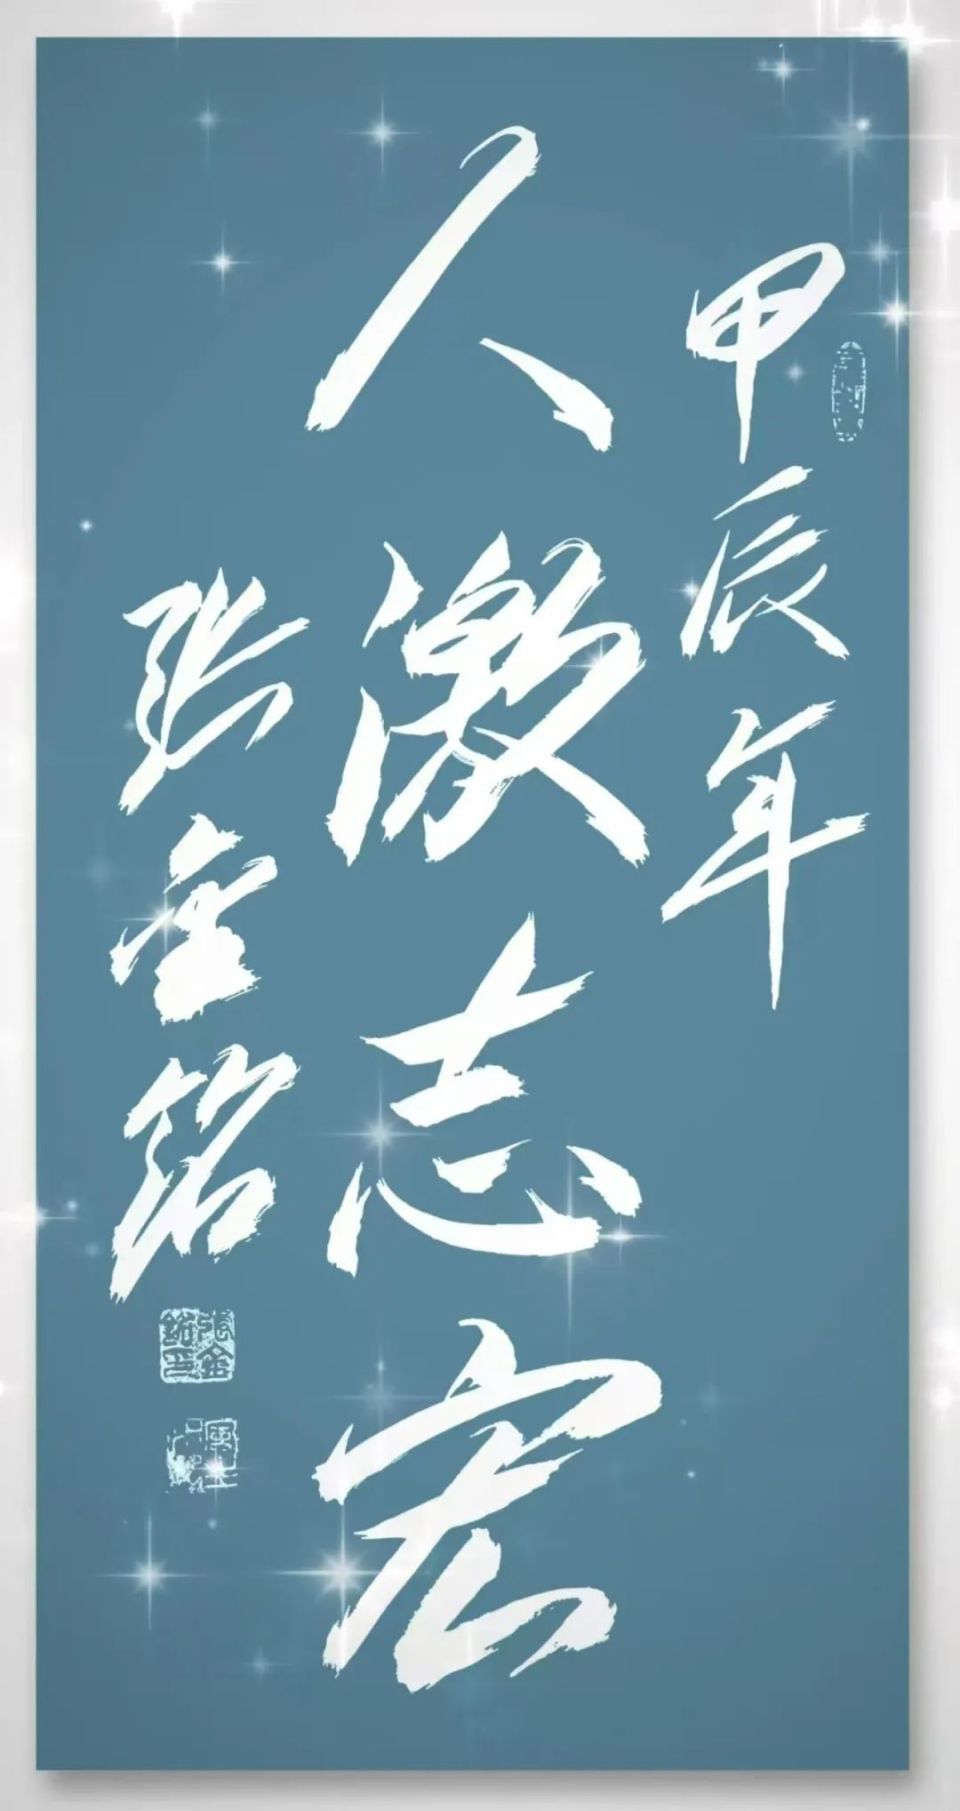 甲辰年
人激志宏
张金铭
張金銘印